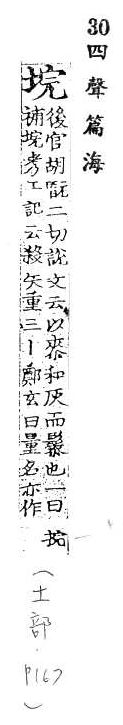 30四聲篇海
垸
後官胡翫二切說文云以桼和灰而䰍也一曰
補垸考工記云殺矢重三丨鄭玄曰量名亦作
垸
（土部．P167）